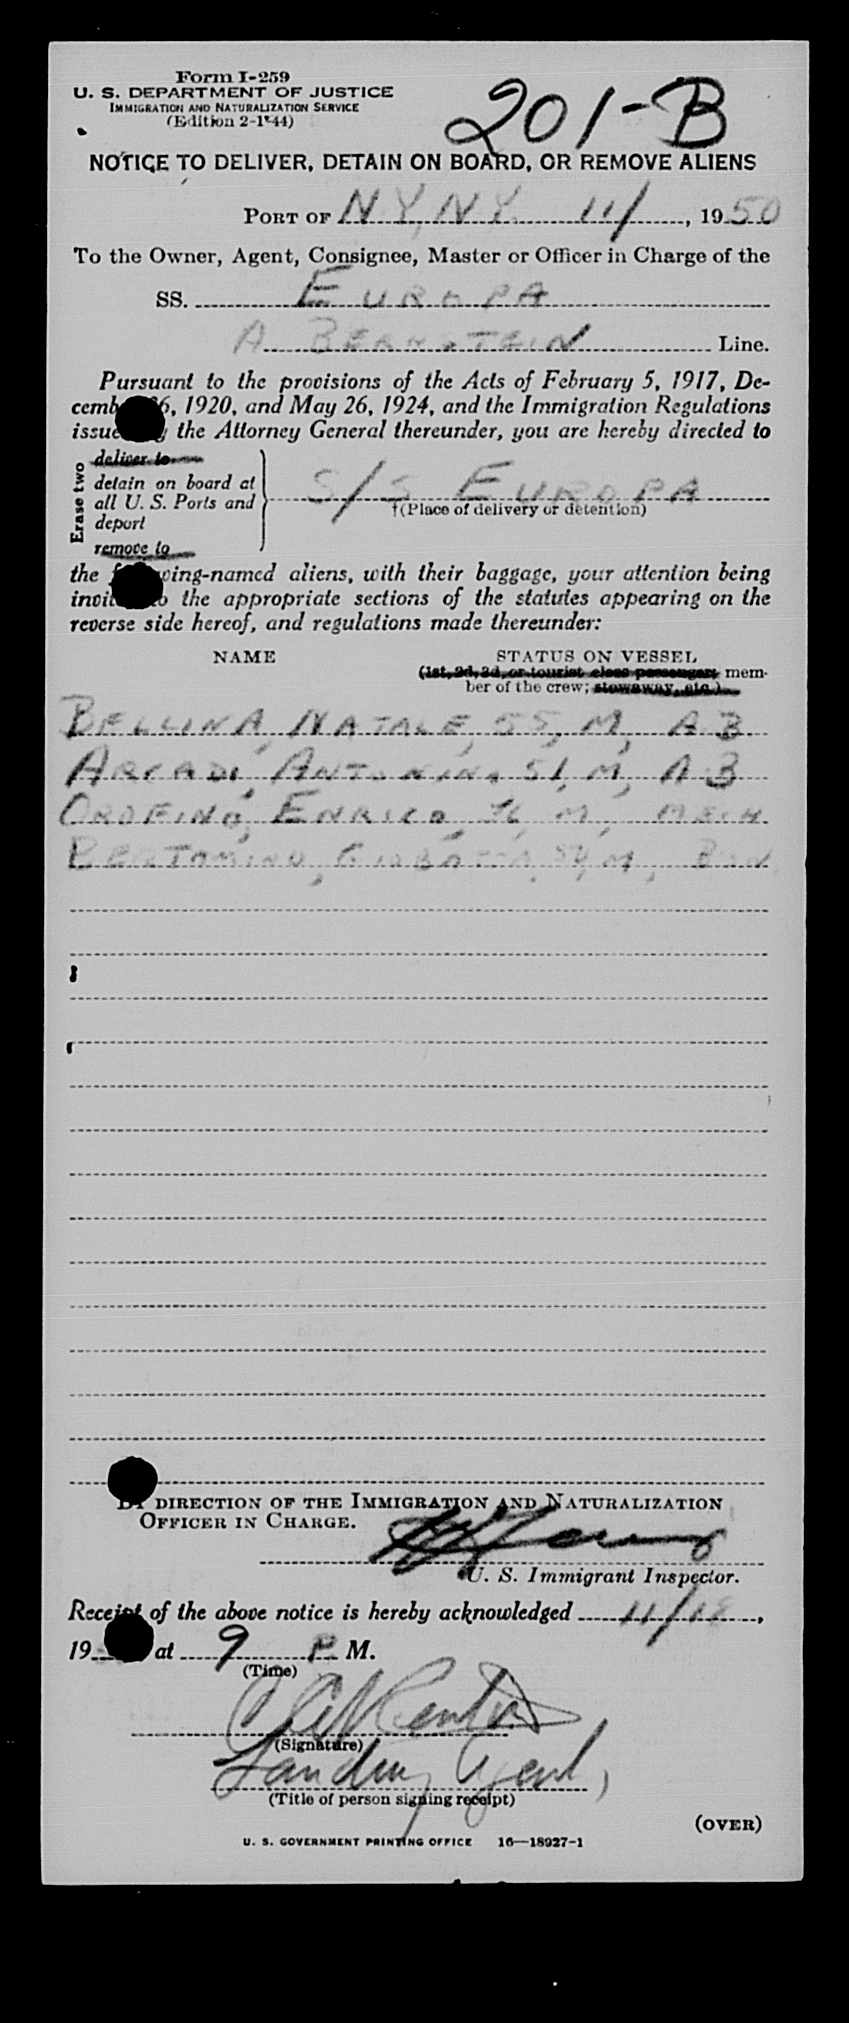 Form I-259
U. S. DEPARTMENT OF JUSTICE
IMMIGRATION AND NATURALIZATION SERVICE
(Edition 2-1-44)
201-B
NOTICE TO DELIVER, DETAIN ON BOARD, OR REMOVE ALIENS
PORT OF N.Y, N.Y. 11/ , 1950
To the Owner, Agent, Consignee, Master or Officer in Charge of the
SS. EUROPA
A BERNSTEIN Line.
Pursuant to the provisions of the Acts of February 5, 1917, De-
cemb 6, 1920, and May 26, 1924, and the Immigration Regulations
issue y the Attorney General thereunder, you are hereby directed to
Erase two
deliver to
detain on board at
all U. S. Ports and
deport
remove to
S/S EUROPA
†(Place of delivery or detention)
the wing-named aliens, with their baggage, your attention being
invit to the appropriate sections of the statutes appearing on the
reverse side hereof, and regulations made thereunder:
NAME STATUS ON VESSEL
(1st, 2d, 3d, or tourist class passenger; mem-
ber of the crew; stowaway, etc.)
BELLINA, NATALE, 55, M, A.B
ARCADI, ANTONINO 51, M, A.B
OROFINO, ENRICO, M, MECH
M,
BY DIRECTION OF THE IMMIGRATION AND NATURALIZATION
OFFICER IN CHARGE.
U. S. Immigrant Inspector.
Receipt of the above notice is hereby acknowledged 11/18 ,
19 at 9 P M.
(Time)
(Signature)
Landing Agent,
(Title of person signing receipt)
(OVER)
U. S. GOVERNMENT PRINTING OFFICE 16—18927-1